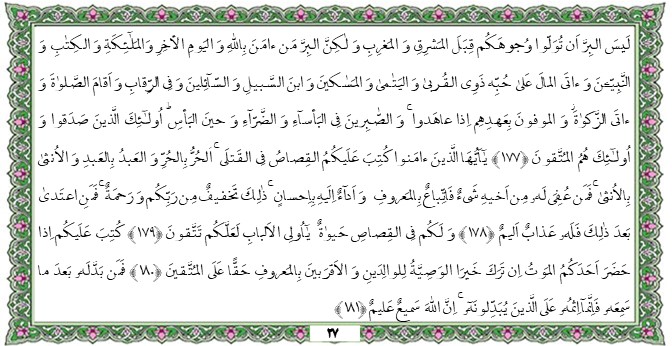 لَيسَ البِرَّ اَن تُوَلّوا وُجوهَكُم قِبَلَ المَشرِقِ وَ المَغرِبِ وَ لٰكِنَّ البِرَّ مَن ءامَنَ بِاللهِ وَ اليَومِ الآخِرِ وَ المَلٰئِكَةِ وَ الكِتٰبِ وَ
النَّبِيّـۧنَ وَ ءاتَى المالَ عَلىٰ حُبِّه ذَوِى القُربىٰ وَ اليَتٰمىٰ وَ المَسٰكينَ وَ ابنَ السَّبيلِ وَ السّآئِلينَ وَ فِى الرِّقابِ وَ اَقامَ الصَّلوٰةَ وَ
ءاتَى الزَّكوٰةَ وَ الموفونَ بِعَهدِهِم اِذا عاهَدوا ۖ وَ الصّٰبِرينَ فِى البَأسآءِ وَ الضَّرّآءِ وَ حينَ البَأسِ ۗ اُولٰئِكَ الَّذينَ صَدَقوا وَ
اُولٰئِكَ هُمُ المُتَّقونَ ﴿١٧٧﴾ يٰاَيُّهَا الَّذينَ ءامَنوا كُتِبَ عَلَيكُمُ القِصاصُ فِى القَتلىٰ ۖ الحُرُّ بِالحُرِّ وَ العَبدُ بِالعَبدِ وَ الاُنثىٰ
بِالاُنثىٰ ۚ فَمَن عُفِىَ لَه مِن اَخيهِ شَىءٌ فَاتِّباعٌ بِالمَعروفِ وَ اَدآءٌ اِلَيهِ بِاِحسانٍ ۗ ذٰلِكَ تَخفيفٌ مِن رَبِّكُم وَ رَحمَةٌ ۗ فَمَنِ اعتَدىٰ
بَعدَ ذٰلِكَ فَلَه عَذابٌ اَليمٌ ﴿١٧٨﴾ وَ لَكُم فِى القِصاصِ حَيوٰةٌ يٰاُولِى الاَلبابِ لَعَلَّكُم تَتَّقونَ ﴿١٧٩﴾ كُتِبَ عَلَيكُم اِذا
حَضَرَ اَحَدَكُمُ المَوتُ اِن تَرَكَ خَيرًا الوَصِيَّةُ لِلوالِدَينِ وَ الاَقرَبينَ بِالمَعروفِ حَقًّا عَلَى المُتَّقينَ ﴿١٨٠﴾ فَمَن بَدَّلَه بَعدَ ما
سَمِعَه فَاِنَّما اِثمُه عَلَى الَّذينَ يُبَدِّلونَه ۚ اِنَّ اللهَ سَميعٌ عَليمٌ ﴿١٨١﴾
٢٧